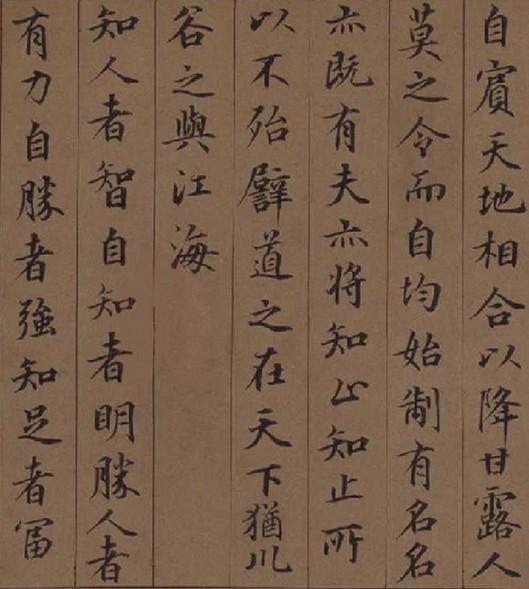 自賓天地相合以降甘露人
莫之令而自均始制有名名
亦既有夫亦将知止知止所
以不殆譬道之在天下猶川
谷之與江海
知人者智自知者明勝人者
有力自勝者強知足者冨